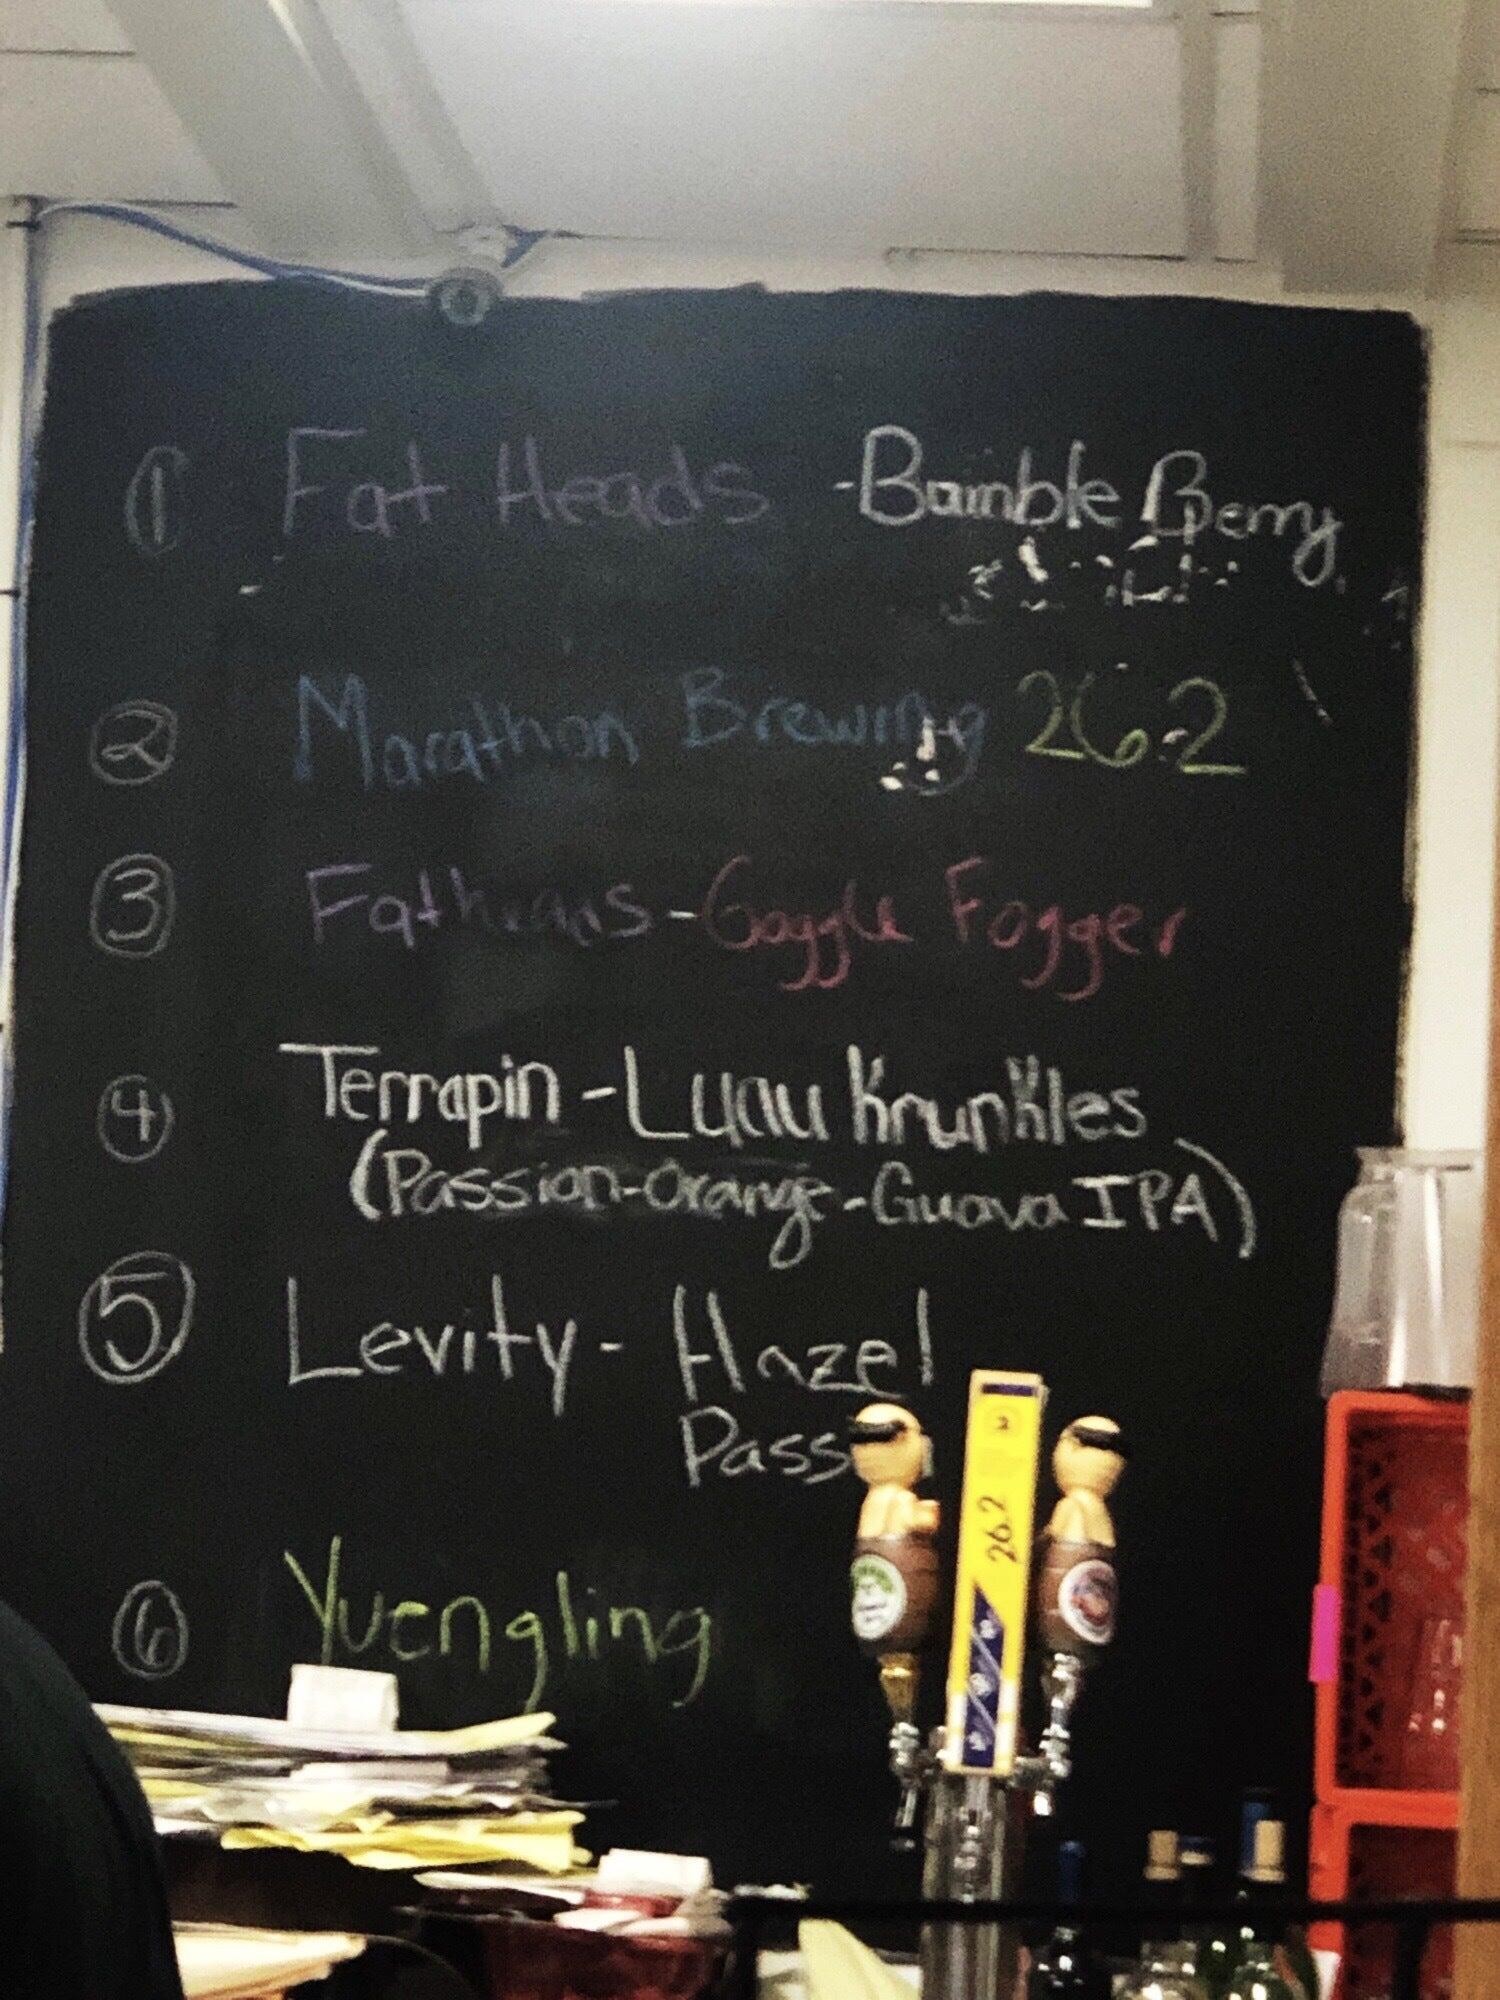 1 Fat Heads - Bumble Berry
2 Marathon Brewing 26.2
3 Fatheads - Goggle Fogger
4 Terrapin - Luau Krunkles
(Passion-Orange-Guava IPA)
5 Levity - Hazel
6 Yuengling
26.2